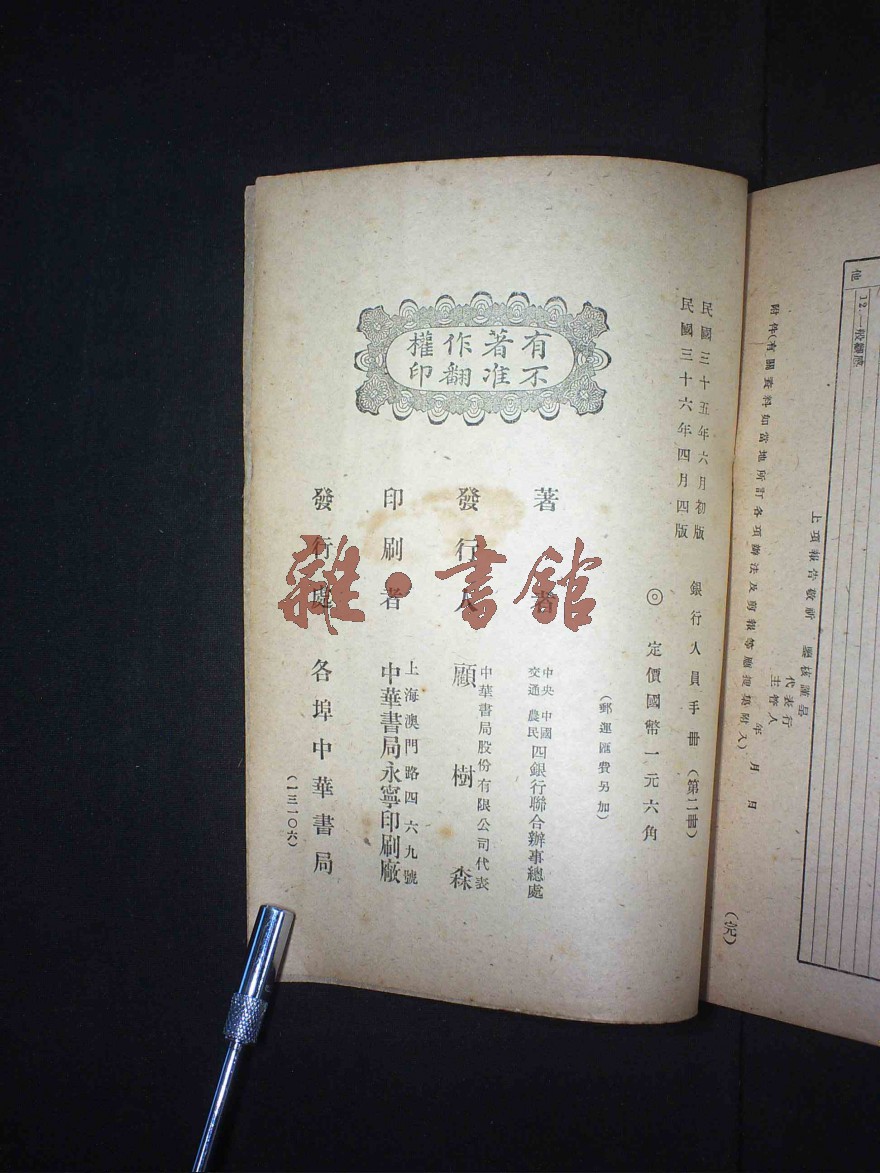 他
12. 一般觀感
上項報告敬祈　鑒核謹呈
代表行
主管人
年　月　日
附件(有關資料如當地所訂各項辦法及剪報等應搜集附入)
民國三十五年六月初版
民國三十六年四月四版
銀行人員手冊(第二冊)
◎定價國幣一元六角
(郵運匯費另加)
有著作權
不准翻印
著者
中央　中國
交通　農民
四銀行聯合辦事總處
發行人
中華書局股份有限公司代表
顧樹森
印刷者
上海澳門路四六九號
中華書局永寧印刷廠
發行處
各埠中華書局
(一三一〇六)
雜·書館